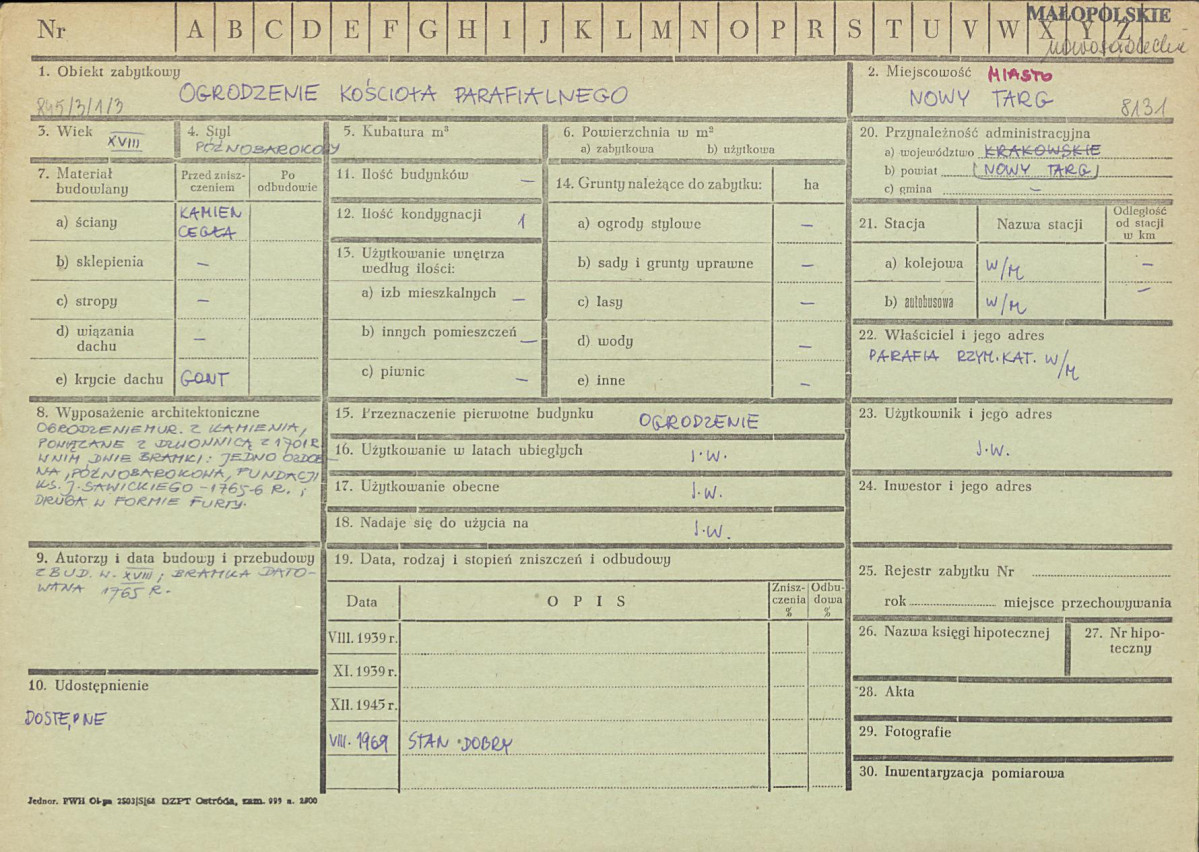 Nr A B C D E F G H I J K L M N O P R S T U V W X Y Z
MAŁOPOLSKIE
nowosądeckie
1. Obiekt zabytkowy
OGRODZENIE KOŚCIOŁA PARAFIALNEGO
845/3/1/3
2. Miejscowość MIASTO
NOWY TARG
8131
3. Wiek XVIII
4. Styl
PÓŹNOBAROKOWY
5. Kubatura m³
6. Powierzchnia w m²
a) zabytkowa b) użytkowa
7. Materiał budowlany
Przed zniszczeniem
Po odbudowie
a) ściany KAMIEŃ
CEGŁA
b) sklepienia —
c) stropy —
d) wiązania dachu —
e) krycie dachu GONT
8. Wyposażenie architektoniczne
OGRODZENIE MUR. Z KAMIENIA,
POWIĄZANE Z DZWONNICĄ Z 1701 R
W NIM DWIE BRAMKI: JEDNO OZDOB
NA, PÓŹNOBAROKOWA, FUNDACJI
KS. J. SAWICKIEGO – 1765-6 R.,
DRUGA W FORMIE FURTY.
9. Autorzy i data budowy i przebudowy
ZBUD. W. XVIII; BRAMKA DATO-
WANA 1765 R.
10. Udostępnienie
DOSTĘPNE
11. Ilość budynków —
12. Ilość kondygnacji 1
13. Użytkowanie wnętrza
według ilości:
a) izb mieszkalnych —
b) innych pomieszczeń —
c) piwnic —
14. Grunty należące do zabytku: ha
a) ogrody stylowe —
b) sady i grunty uprawne —
c) lasy —
d) wody —
e) inne —
15. Przeznaczenie pierwotne budynku OGRODZENIE
16. Użytkowanie w latach ubiegłych J.W.
17. Użytkowanie obecne J.W.
18. Nadaje się do użycia na J.W.
19. Data, rodzaj i stopień zniszczeń i odbudowy
Data
OPIS
Zniszczenia %
Odbudowa %
VIII. 1939 r.
XI. 1939 r.
XII. 1945 r.
VIII. 1969 STAN DOBRY
20. Przynależność administracyjna
a) województwo KRAKOWSKIE
b) powiat (NOWY TARG)
c) gmina —
21. Stacja
Nazwa stacji
Odległość
od stacji
w km
a) kolejowa W/M —
b) autobusowa W/M —
22. Właściciel i jego adres
PARAFIA RZYM. KAT. W/M
23. Użytkownik i jego adres
J.W.
24. Inwestor i jego adres
25. Rejestr zabytku Nr
rok miejsce przechowywania
26. Nazwa księgi hipotecznej
27. Nr hipoteczny
28. Akta
29. Fotografie
30. Inwentaryzacja pomiarowa
Jednor. PWH Ol-yn 2503/S/68 DZPT Ostróda, zam. 999 n. 2500